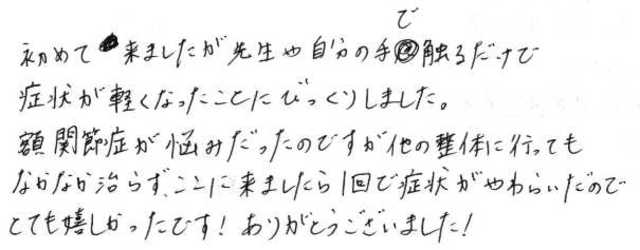 初めて来ましたが先生や自分の手で触るだけで
症状が軽くなったことにびっくりしました。
額関節症が悩みだったのですが他の整体に行っても
なかなか治らず、ここに来ましたら1回で症状がやわらいだので
とても嬉しかったです！ありがとうございました！